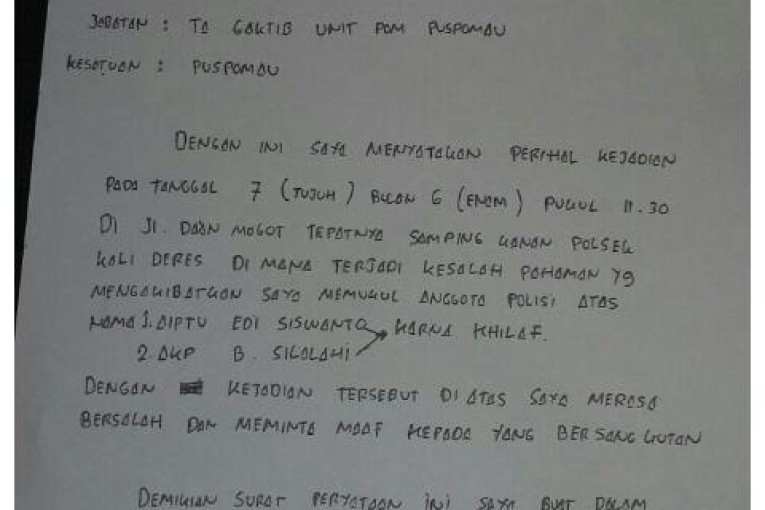 JABATAN : TA GAKTIB UNIT POM PUSPOMAU
KESATUAN : PUSPOMAU
DENGAN INI SAYA MENYATAKAN PERIHAL KEJADIAN
PADA TANGGAL 7 (TUJUH) BULAN 6 (ENAM) PUKUL 11.30
DI Jl. DAAN MOGOT TEPATNYA SAMPING KANAN POLSEK
KALI DERES DI MANA TERJADI KESALAH PAHAMAN YG
MENGAKIBATKAN SAYA MEMUKUL ANGGOTA POLISI ATAS
NAMA 1. AIPTU EDI SISWANTO KARNA KHILAF.
2. AKP B. SILALAHI
DENGAN KEJADIAN TERSEBUT DI ATAS SAYA MERASA
BERSALAH DAN MEMINTA MAAF KEPADA YANG BERSANGKUTAN
DEMIKIAN SURAT PERYATAAN INI SAYA BUAT DALAM